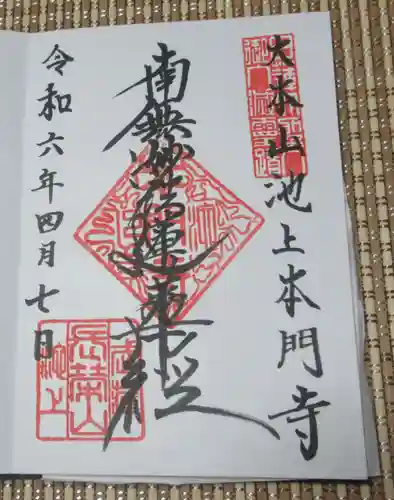 大本山池上本門寺
南無妙法蓮華経
令和六年四月七日